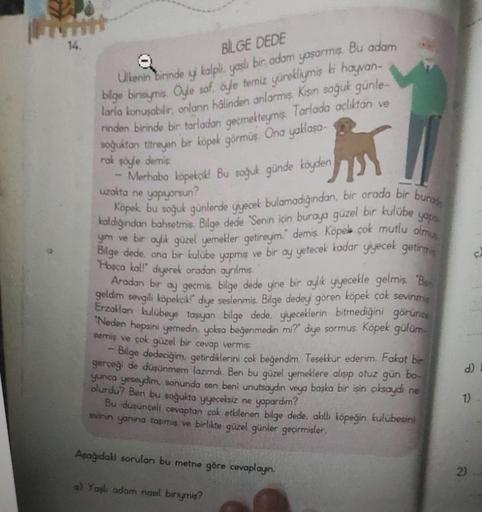 14.
BİLGE DEDE
Ülkenin birinde iyi kalpli, yaşlı bir adam yaşarmış. Bu adam
bilge birisiymiş. Öyle saf, öyle temiz yürekliymiş ki hayvan-
larla konuşabilir, onların hâlinden anlarmış. Kışın soğuk günle-
rinden birinde bir tarladan geçmekteymiş. Tarlada açlıktan ve
soğuktan titreyen bir köpek görmüş. Ona yaklaşa-
rak şöyle demiş:
— Merhaba köpekçik! Bu soğuk günde köyden
uzakta ne yapıyorsun?
Köpek, bu soğuk günlerde yiyecek bulamadığından, bir orada bir burada
kaldığından bahsetmiş. Bilge dede "Senin için buraya güzel bir kulübe yapa-
yım ve bir aylık güzel yemekler getireyim." demiş. Köpek çok mutlu olmuş.
Bilge dede, ona bir kulübe yapmış ve bir ay yetecek kadar yiyecek getirmiş.
"Hoşça kal!" diyerek oradan ayrılmış.
Aradan bir ay geçmiş, bilge dede yine bir aylık yiyecekle gelmiş. "Ben
geldim sevgili köpekçik!" diye seslenmiş. Bilge dedeyi gören köpek çok sevinmiş.
Erzakları kulübeye taşıyan bilge dede, yiyeceklerin bitmediğini görünce
"Neden hepsini yemedin, yoksa beğenmedin mi?" diye sormuş. Köpek gülüm-
semiş ve çok güzel bir cevap vermiş:
— Bilge dedeciğim, getirdiklerini çok beğendim. Teşekkür ederim. Fakat bir
gerçeği de düşünmem lazımdı. Ben bu güzel yemeklere alışıp otuz gün bo-
yunca yeseydim, sonunda sen beni unutsaydın veya başka bir işin çıksaydı ne
olurdu? Ben bu soğukta yiyeceksiz ne yapardım?
Bu düşünceli cevaptan çok etkilenen bilge dede, akıllı köpeğin kulübesini
evinin yanına taşımış ve birlikte güzel günler geçirmişler.
Aşağıdaki soruları bu metne göre cevaplayın.
a) Yaşlı adam nasıl biriymiş?
ç)
d)
1)
2)